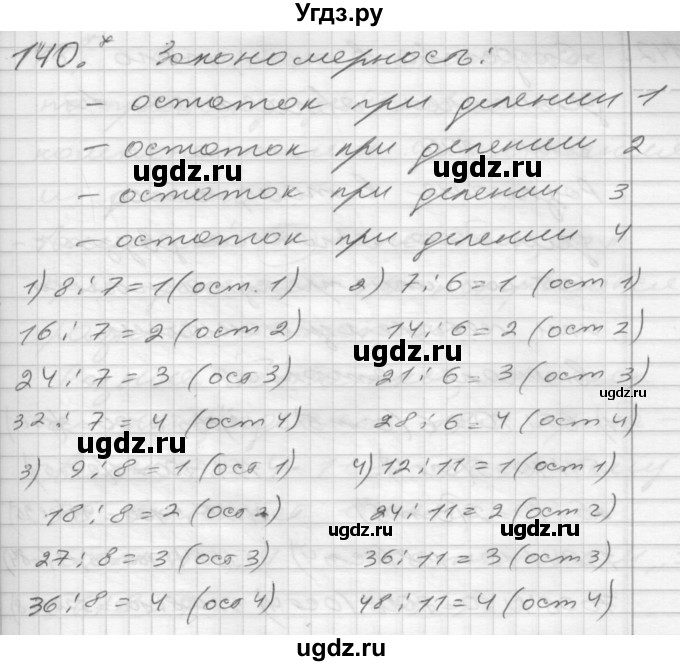 Угдз.ру
140.* Закономерность:
– остаток при делении 1
– остаток при делении 2
– остаток при делении 3
– остаток при делении 4
1) 8 : 7 = 1 (ост. 1) 2) 7 : 6 = 1 (ост 1)
16 : 7 = 2 (ост 2) 14 : 6 = 2 (ост 2)
24 : 7 = 3 (ост 3) 21 : 6 = 3 (ост 3)
32 : 7 = 4 (ост 4) 28 : 6 = 4 (ост 4)
3) 9 : 8 = 1 (ост 1) 4) 12 : 11 = 1 (ост 1)
18 : 8 = 2 (ост 2) 24 : 11 = 2 (ост 2)
27 : 8 = 3 (ост 3) 36 : 11 = 3 (ост 3)
36 : 8 = 4 (ост 4) 48 : 11 = 4 (ост 4)
ugdz.ru
ugdz.ru
ugdz.ru
ugdz.ru
ugdz.ru
ugdz.ru
ugdz.ru
ugdz.ru
ugdz.ru